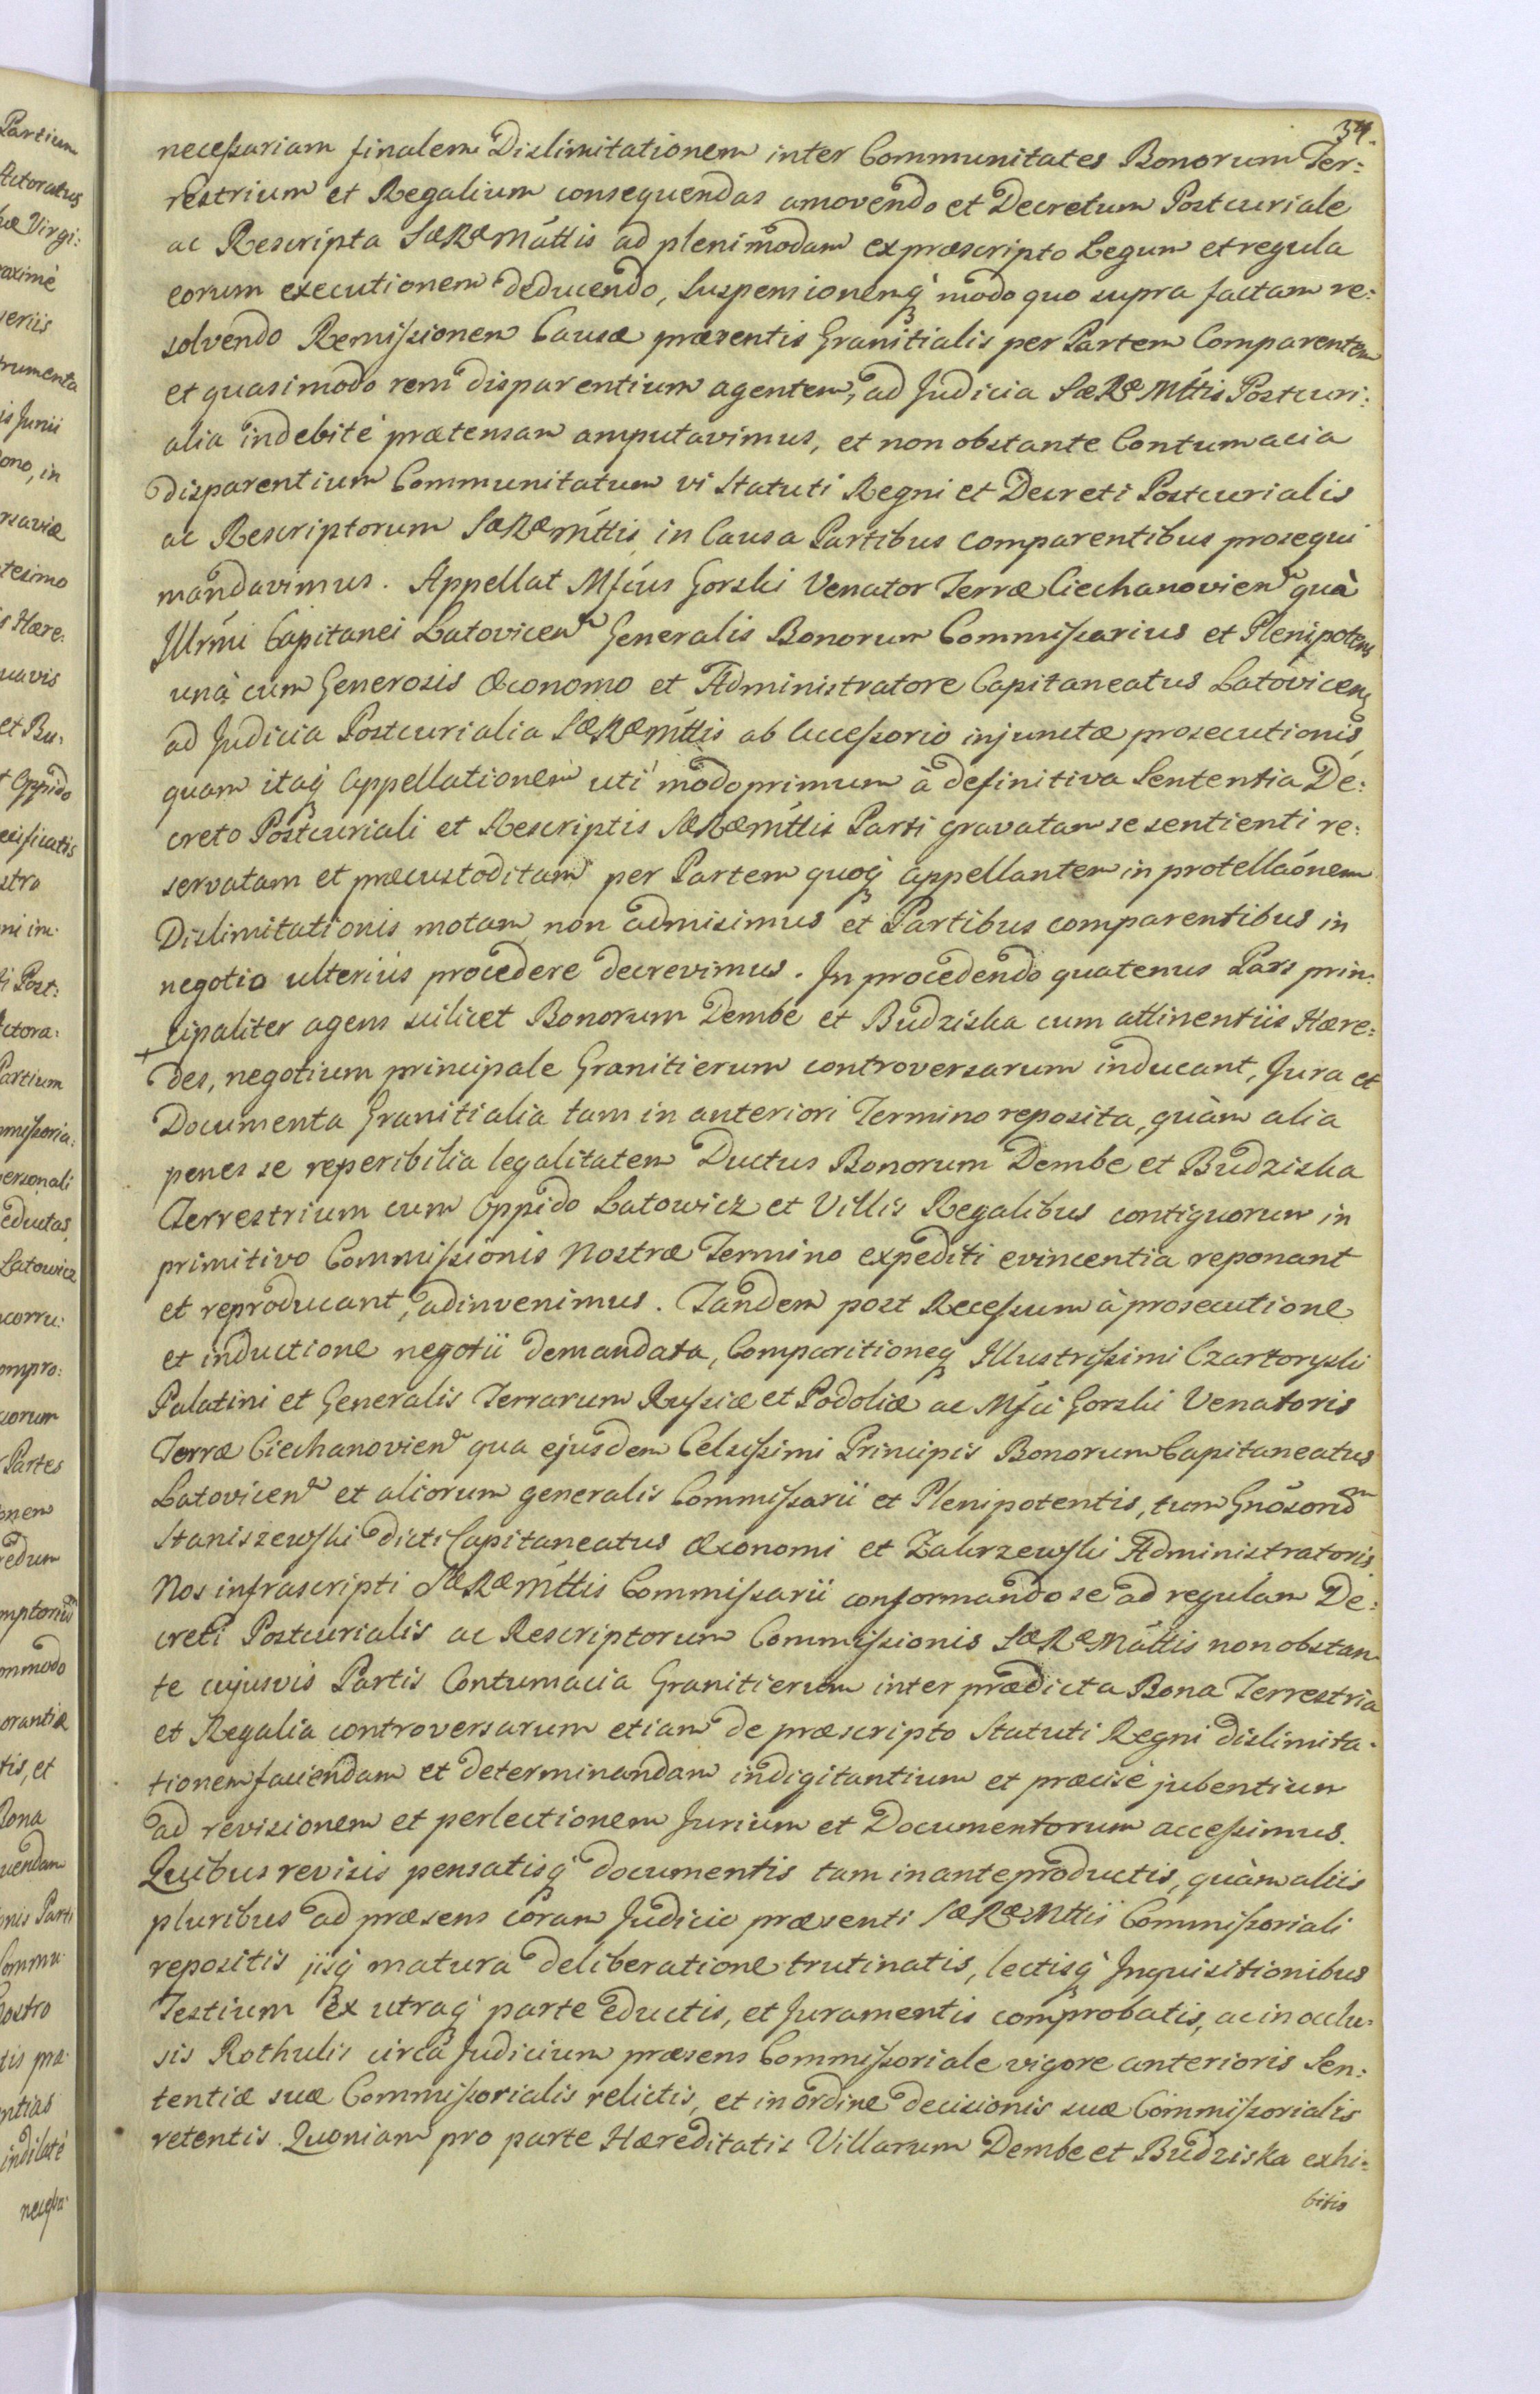 34.
necessariam finalem Dislimitationem inter Communitates Bonorum Ter:
restrium et Regalium consequendas amovendo et Decretum Postcuriale
ac Rescripta SæRæMáttis ad plenimodam ex præscripto Legum et regula
eorum executionem deducendo, Suspensionemq́ modo quo supra factam re:
solvendo Remissionem Causæ præsentis Granitialis per Partem Comparentem
et quasimodo rem disparentium agentem, ad Judicia SæRæMttis Postcuri:
alia indebité prætensam amputavimus, et non obstante Contumacia
disparentium Communitatum vi Statuti Regni et Decreti Postcurialis
ac Rescriptorum SæRæMttis in Causa Partibus comparentibus prosequi
mandavimus. Appellat Mfcus Gorski Venator Terræ Ciechanovien quà
Illrmi Capitanei Latovicen Generalis Bonorum Commissarius et Plenipotens
unà cum Generosis Œconomo et Administratore Capitaneatus Latovicen
ad Judicia Postcurialia SæRæMttis ab Accessorio injunctæ prosecutionis,
quam itaq́ Appellationem uti modo primum à definitiva Sententia De:
creto Postcuriali et Rescriptis SæRæMttis Parti gravatam se sentienti re:
servatam et præcustoditam per Partem quoq́ appellantem in protellaónem
Dislimitationis motam non admisimus et Partibus comparentibus in
negotio ulteriùs procedere decrevimus. In procedendo quatenus Pars prin:
cipaliter agens scilicet Bonorum Dembe et Budziska cum attinentiis Hære:
des, negotium principale Granitierum controversarum inducant, Jura et
Documenta Granitialia tam in anteriori Termino reposita, quàm alia
penes se reperibilia legalitatem Ductus Bonorum Dembe et Budziska
Terrestrium cum Oppido Latowicz et Villis Regalibus contiguorum in
primitivo Commissionis Nostræ Termino expediti evincentia reponant
et reproducant, adinvenimus. Tandem post Recessum à prosecutione
et inductione negotii demandata, Comparitioneq́ Illustrissimi Czartoryski
Palatini et Generalis Terrarum Russiæ et Podoliæ ac Mfci Gorski Venatoris
Terræ Ciechanovien qua ejusdem Celsissimi Principis Bonorum Capitaneatus
Latovicen et aliorum generalis Commissarii et Plenipotentis, tum Gnósorum
Staniszewski dicti Capitaneatus Œconomi et Zakrzewski Administratoris
Nos infrascripti SæRæMttis Commissarii conformando se ad regulam De:
creti Postcurialis ac Rescriptorum Commissionis SæRæMáttis non obstan
te cujusvis Partis Contumacia Granitierum inter prædicta Bona Terrestria
et Regalia controversarum etiam de præscripto Statuti Regni dislimita:
tionem faciendam et determinandam indigitantium et præcisé jubentium
ad revisionem et perlectionem Jurium et Documentorum accessimus.
Quibus revisis pensatisq́ documentis tam in ante productis, quàm aliis
pluribus ad præsens coram Judicio præsenti SæRæMttis Commissoriali
repositis jisq́ matura deliberatione trutinatis, lectisq́ Inquisitionibus
Testium ex utraq́ parte eductis, et Juramentis comprobatis, ac in occlu:
sis Rothulis circa Judicium præsens Commissoriale vigore anterioris Sen:
tentiæ suæ Commissorialis relictis, et in ordine decisionis suæ Commissorialis
retentis. Quoniam pro parte Hæreditatis Villarum Dembe et Budziska exhi:
bitis